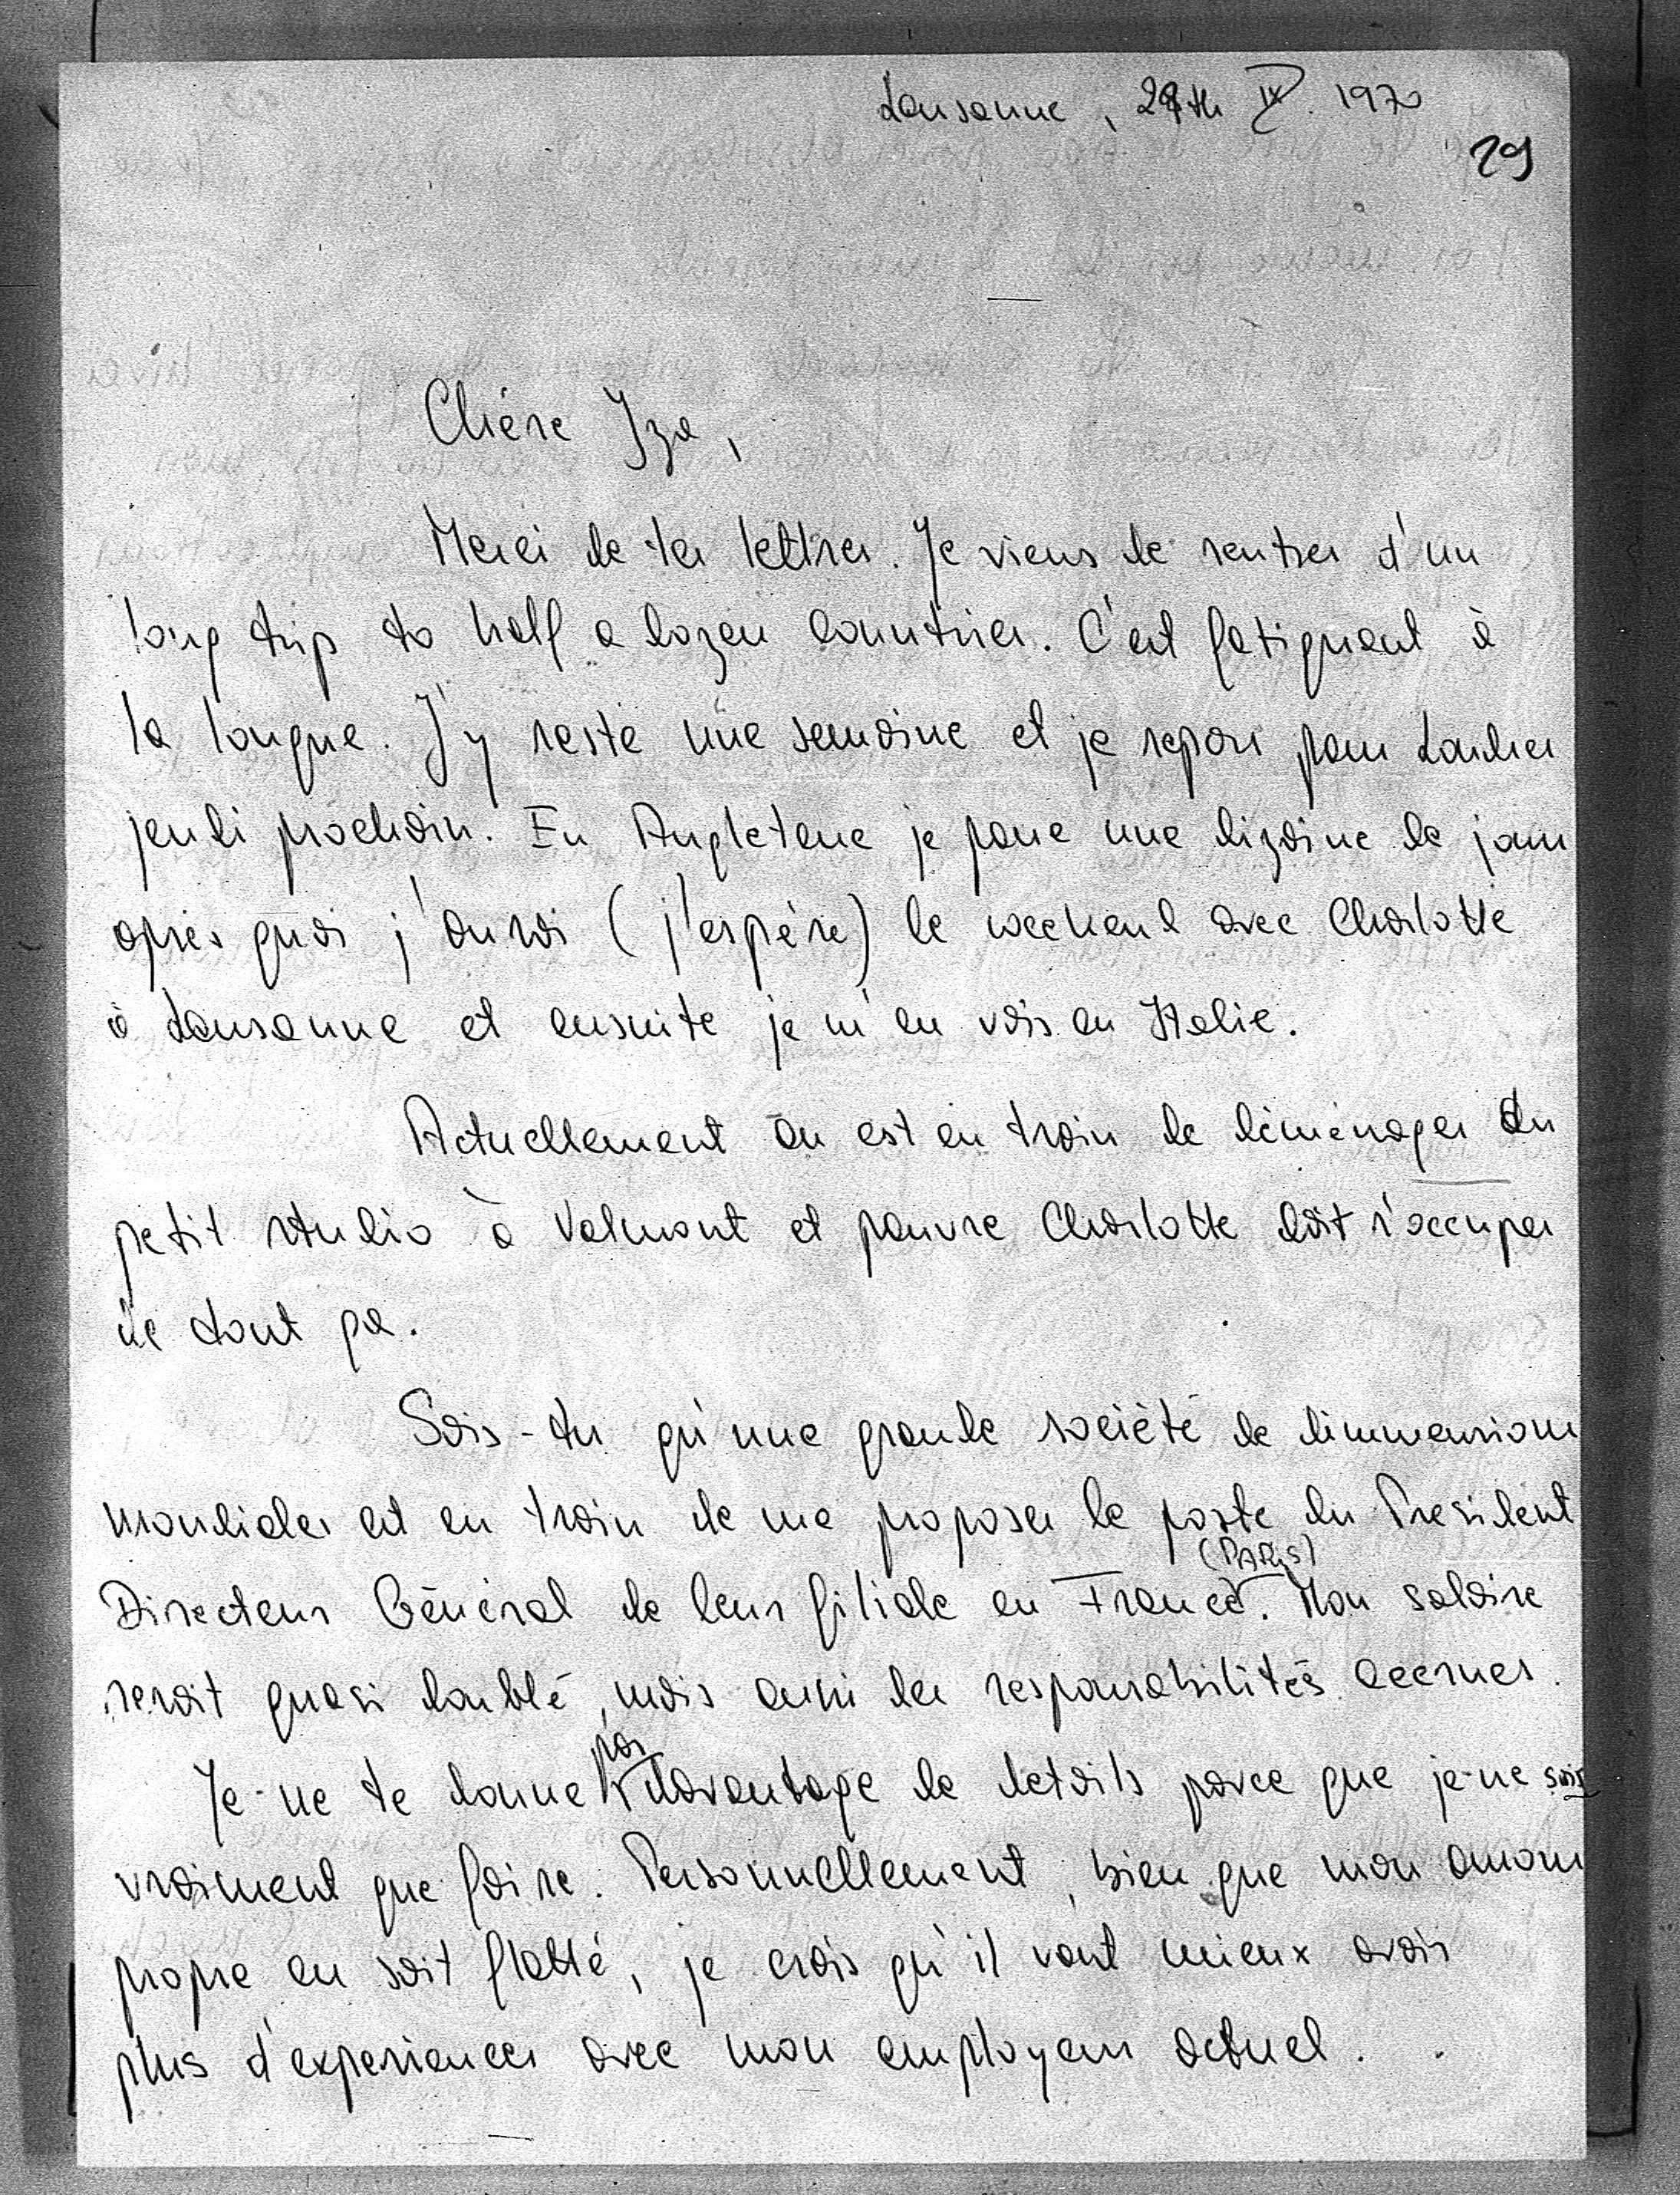 Lausanne, 29th IX. 1970
29
Chére Iza,
Merci de tes lettres. Je viens de rentrer d'un
long trip to half a dozen countries. C'est fatiguant à
la longue. J'y reste une semaine et je repars pour Londres
jeudi prochain. En Angleterre je passe une dizaine de jours
après quoi j'aurai (j'espère) le weekend avec Charlotte
à Lausanne et ensuite je m'en vais en Italie.
Actuellement on est en train de déménager du
petit studio à Valmont et pauvre Charlotte doit s'occuper
de tout ça.
Sais-tu qu'une grande société de dimmensions
mondiales est en train de me proposer le poste du President
(PARIS)
Directeur Général de leur filiale en France. Mon salaire
serait quasi doublé, mais aussi des responsabilités accrues.
pas
Je ne te donne davantage de details parce que je ne sais
vraiment que faire. Personnellement, bien que mon amour
propre en soit flatté, je crois qu'il vaut mieux avoir
plus d'experiences avec mon employeur actuel.